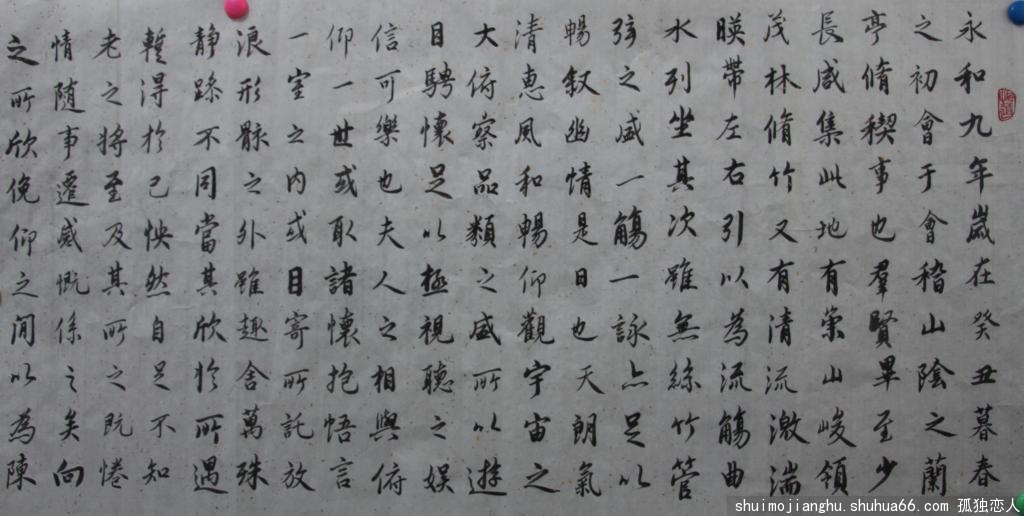 永和九年歲在癸丑暮春
之初會于會稽山陰之蘭
亭脩稧事也羣賢畢至少
長咸集此地有崇山峻領
茂林脩竹又有清流激湍
暎帶左右引以為流觴曲
水列坐其次雖無絲竹管
弦之盛一觴一詠亦足以
暢叙幽情是日也天朗氣
清惠風和暢仰觀宇宙之
大俯察品類之盛所以遊
目騁懷足以極視聽之娛
信可樂也夫人之相與俯
仰一世或取諸懷抱悟言
一室之内或因寄所託放
浪形骸之外雖趣舍萬殊
静躁不同當其欣於所遇
蹔得於己怏然自足不知
老之將至及其所之既惓
情随事遷感慨係之矣向
之所欣俛仰之閒以為陳
shuimojianghu.shuhua66.com 孤独恋人